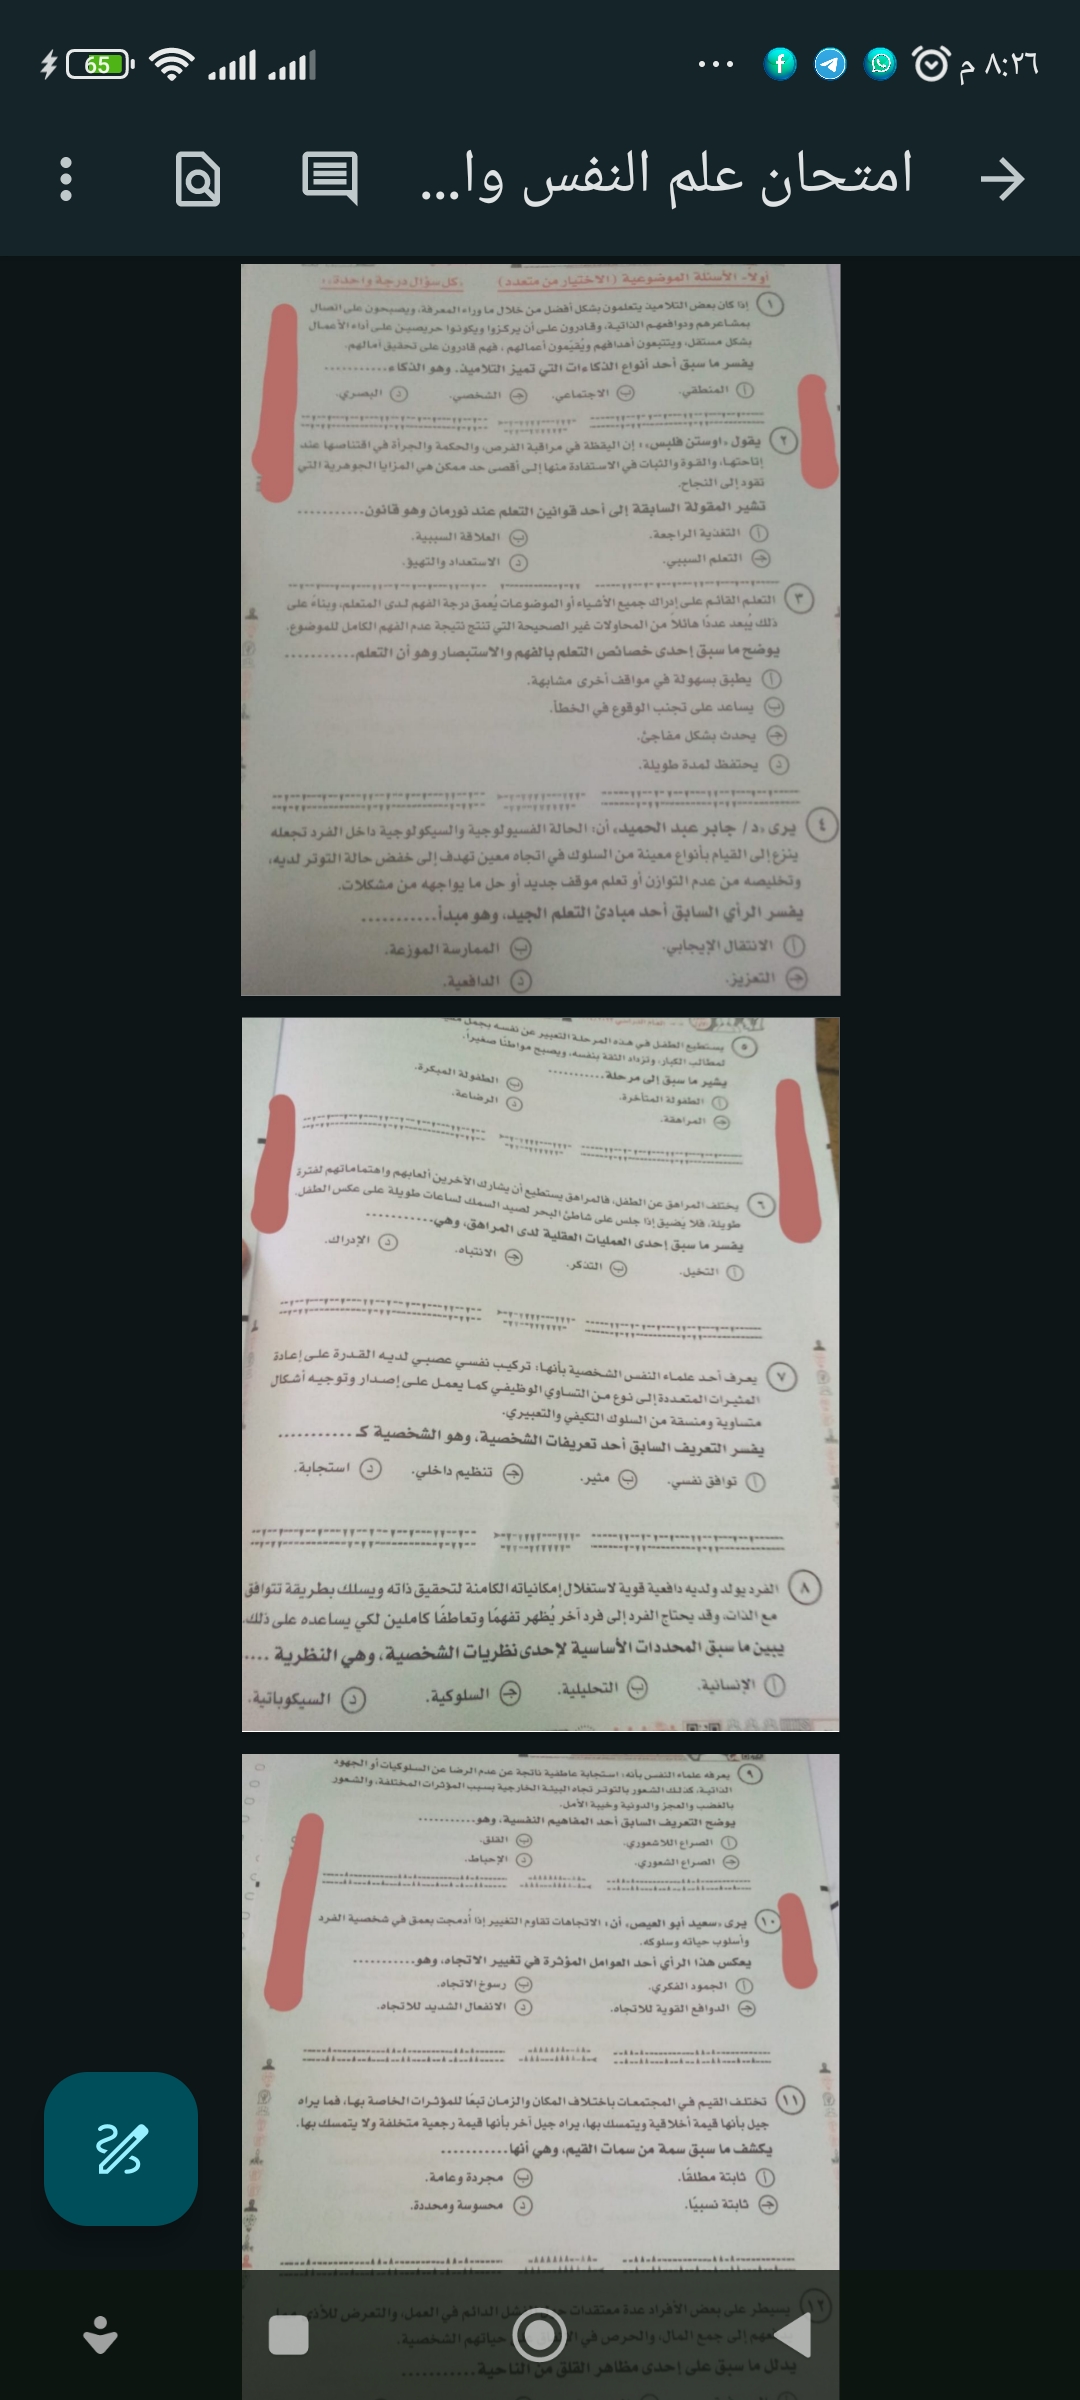 65
٨:٢٦ م
امتحان علم النفس وا...
أولاً- الأسئلة الموضوعية (الاختيار من متعدد) «كل سؤال درجة واحدة»:
١ إذا كان بعض التلاميذ يتعلمون بشكل أفضل من خلال ما وراء المعرفة، ويصبحون على اتصال
بمشاعرهم ودوافعهم الذاتية، وقادرون على أن يركزوا ويكونوا حريصين على أداء الأعمال
بشكل مستقل، ويتتبعون أهدافهم ويُقيّمون أعمالهم، فهم قادرون على تحقيق آمالهم.
يفسر ما سبق أحد أنواع الذكاءات التي تميز التلاميذ، وهو الذكاء...........
أ المنطقي. ب الاجتماعي. ج الشخصي. د البصري.
٢ يقول «أوستن فلبس»: إن اليقظة في مراقبة الفرص، والحكمة والجرأة في اقتناصها عند
إتاحتها، والقوة والثبات في الاستفادة منها إلى أقصى حد ممكن هي المزايا الجوهرية التي
تقود إلى النجاح.
تشير المقولة السابقة إلى أحد قوانين التعلم عند نورمان وهو قانون...........
أ التغذية الراجعة. ب العلاقة السببية.
ج التعلم السببي. د الاستعداد والتهيؤ.
٣ التعلم القائم على إدراك جميع الأشياء أو الموضوعات يُعمق درجة الفهم لدى المتعلم، وبناءً على
ذلك يُبعد عددًا هائلاً من المحاولات غير الصحيحة التي تنتج نتيجة عدم الفهم الكامل للموضوع.
يوضح ما سبق إحدى خصائص التعلم بالفهم والاستبصار وهو أن التعلم...........
أ يطبق بسهولة في مواقف أخرى مشابهة.
ب يساعد على تجنب الوقوع في الخطأ.
ج يحدث بشكل مفاجئ.
د يحتفظ لمدة طويلة.
٤ يرى «د/ جابر عبد الحميد» أن: الحالة الفسيولوجية والسيكولوجية داخل الفرد تجعله
ينزع إلى القيام بأنواع معينة من السلوك في اتجاه معين تهدف إلى خفض حالة التوتر لديه،
وتخليصه من عدم التوازن أو تعلم موقف جديد أو حل ما يواجهه من مشكلات.
يفسر الرأي السابق أحد مبادئ التعلم الجيد، وهو مبدأ...........
أ الانتقال الإيجابي. ب الممارسة الموزعة.
ج التعزيز. د الدافعية.
٥ يستطيع الطفل في هذه المرحلة التعبير عن نفسه بجمل
لمطالب الكبار، وتزداد الثقة بنفسه، ويصبح مواطنًا صغيرًا.
يشير ما سبق إلى مرحلة...........
أ الطفولة المتأخرة. ب الطفولة المبكرة.
ج المراهقة. د الرضاعة.
٦ يختلف المراهق عن الطفل، فالمراهق يستطيع أن يشارك الآخرين ألعابهم واهتماماتهم لفترة
طويلة، فلا يَضيق إذا جلس على شاطئ البحر لصيد السمك لساعات طويلة على عكس الطفل.
يفسر ما سبق إحدى العمليات العقلية لدى المراهق، وهي...........
أ التخيل. ب التذكر. ج الانتباه. د الإدراك.
٧ يعرف أحد علماء النفس الشخصية بأنها: تركيب نفسي عصبي لديه القدرة على إعادة
المثيرات المتعددة إلى نوع من التساوي الوظيفي كما يعمل على إصدار وتوجيه أشكال
متساوية ومنسقة من السلوك التكيفي والتعبيري.
يفسر التعريف السابق أحد تعريفات الشخصية، وهو الشخصية كـ...........
أ توافق نفسي. ب مثير. ج تنظيم داخلي. د استجابة.
٨ الفرد يولد ولديه دافعية قوية لاستغلال إمكانياته الكامنة لتحقيق ذاته ويسلك بطريقة تتوافق
مع الذات، وقد يحتاج الفرد إلى فرد آخر يُظهر تفهمًا وتعاطفًا كاملين لكي يساعده على ذلك.
يبين ما سبق المحددات الأساسية لإحدى نظريات الشخصية، وهي النظرية ....
أ الإنسانية. ب التحليلية. ج السلوكية. د السيكوباتية.
٩ يعرفه علماء النفس بأنه: استجابة عاطفية ناتجة عن عدم الرضا عن السلوكيات أو الجهود
الذاتية، كذلك الشعور بالتوتر تجاه البيئة الخارجية بسبب المؤثرات المختلفة، والشعور
بالغضب والعجز والدونية وخيبة الأمل.
يوضح التعريف السابق أحد المفاهيم النفسية، وهو...........
أ الصراع اللاشعوري. ب القلق.
ج الصراع الشعوري. د الإحباط.
١٠ يرى «سعيد أبو العيص» أن: الاتجاهات تقاوم التغيير إذا أُدمجت بعمق في شخصية الفرد
وأسلوب حياته وسلوكه.
يعكس هذا الرأي أحد العوامل المؤثرة في تغيير الاتجاه، وهو...........
أ الجمود الفكري. ب رسوخ الاتجاه.
ج الدوافع القوية للاتجاه. د الانفعال الشديد للاتجاه.
١١ تختلف القيم في المجتمعات باختلاف المكان والزمان تبعًا للمؤثرات الخاصة بها، فما يراه
جيل بأنها قيمة أخلاقية ويتمسك بها، يراه جيل آخر بأنها قيمة رجعية متخلفة ولا يتمسك بها.
يكشف ما سبق سمة من سمات القيم، وهي أنها...........
أ ثابتة مطلقًا. ب مجردة وعامة.
ج ثابتة نسبيًا. د محسوسة ومحددة.
١٢ يسيطر على بعض الأفراد عدة معتقدات الفشل الدائم في العمل، والتعرض للأذى
إلى جمع المال، والحرص في حياتهم الشخصية.
يدلل ما سبق على إحدى مظاهر القلق من الناحية...........